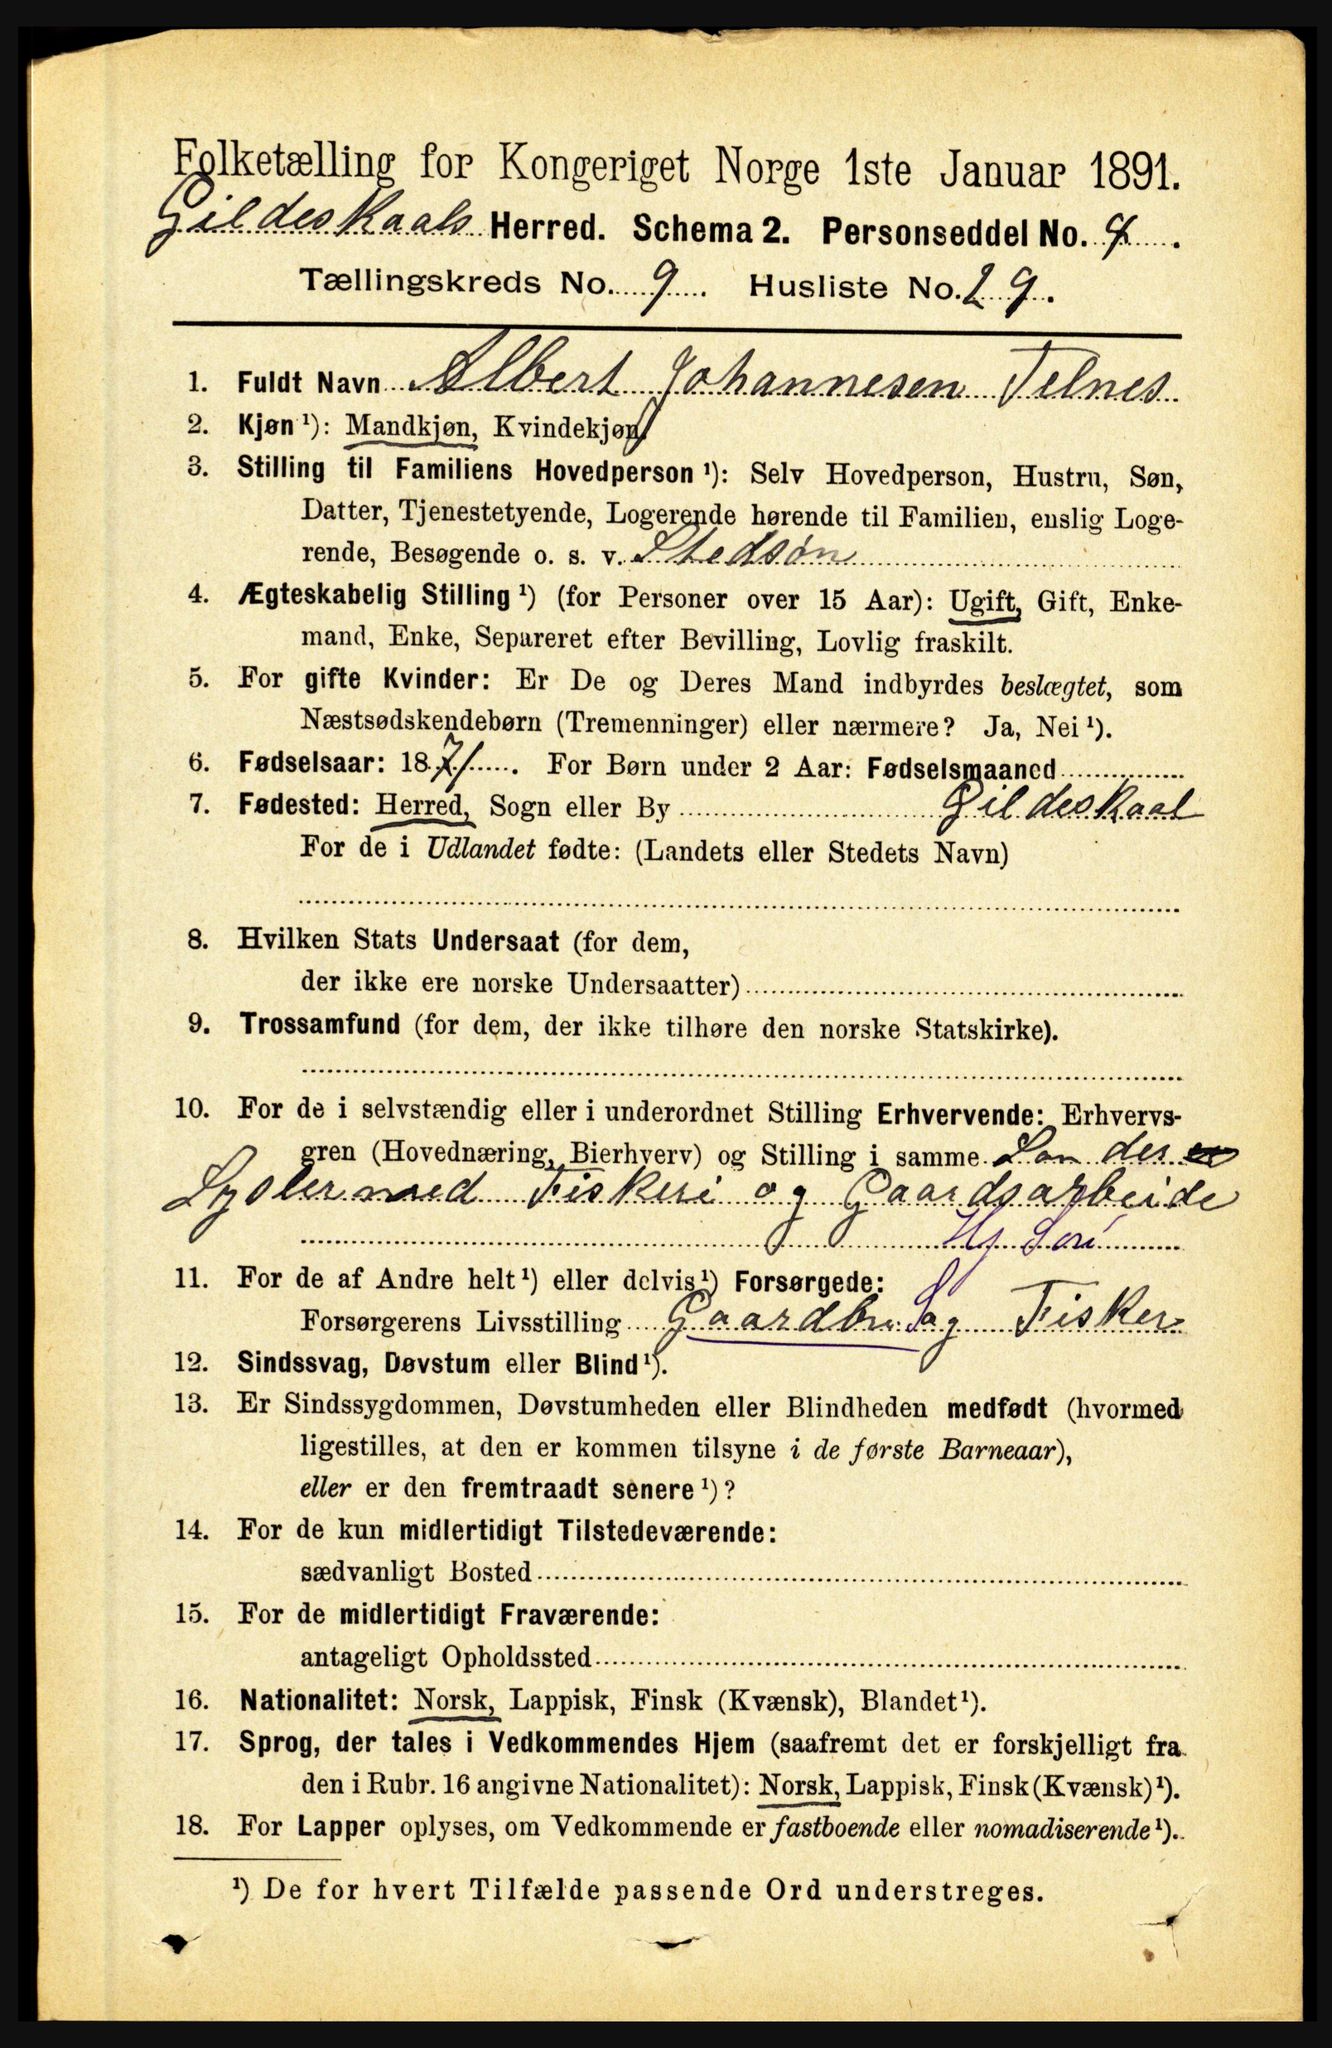 Folketælling for Kongeriget Norge 1ste Januar 1891.
Gildeskaals Herred. Schema 2. Personseddel No. 4.
Tællingskreds No. 9. Husliste No. 29.
1. Fuldt Navn Albert Johannesen Telnes
2. Kjøn ¹): Mandkjøn, Kvindekjøn
3. Stilling til Familiens Hovedperson ¹): Selv Hovedperson, Hustru, Søn,
Datter, Tjenestetyende, Logerende hørende til Familien, enslig Loge-
rende, Besøgende o. s. v. Stedsøn
4. Ægteskabelig Stilling ¹) (for Personer over 15 Aar): Ugift, Gift, Enke-
mand, Enke, Separeret efter Bevilling, Lovlig fraskilt.
5. For gifte Kvinder: Er De og Deres Mand indbyrdes beslægtet, som
Næstsødskendebørn (Tremenninger) eller nærmere? Ja, Nei ¹).
6. Fødselsaar: 1871. For Børn under 2 Aar: Fødselsmaaned
7. Fødested: Herred, Sogn eller By Gildeskaal
For de i Udlandet fødte: (Landets eller Stedets Navn)
8. Hvilken Stats Undersaat (for dem,
der ikke ere norske Undersaatter)
9. Trossamfund (for dem, der ikke tilhøre den norske Statskirke).
10. For de i selvstændig eller i underordnet Stilling Erhvervende: Erhvervs-
gren (Hovednæring, Bierhverv) og Stilling i samme Søn der
Sysler med Fiskeri og Gaardsarbeide
11. For de af Andre helt ¹) eller delvis ¹) Forsørgede:
Forsørgerens Livsstilling Gaardbr. S og Fisker
12. Sindssvag, Døvstum eller Blind ¹).
13. Er Sindssygdommen, Døvstumheden eller Blindheden medfødt (hvormed
ligestilles, at den er kommen tilsyne i de første Barneaar),
eller er den fremtraadt senere ¹)?
14. For de kun midlertidigt Tilstedeværende:
sædvanligt Bosted
15. For de midlertidigt Fraværende:
antageligt Opholdssted
16. Nationalitet: Norsk, Lappisk, Finsk (Kvænsk), Blandet ¹).
17. Sprog, der tales i Vedkommendes Hjem (saafremt det er forskjelligt fra
den i Rubr. 16 angivne Nationalitet): Norsk, Lappisk, Finsk (Kvænsk) ¹).
18. For Lapper oplyses, om Vedkommende er fastboende eller nomadiserende ¹).
¹) De for hvert Tilfælde passende Ord understreges.